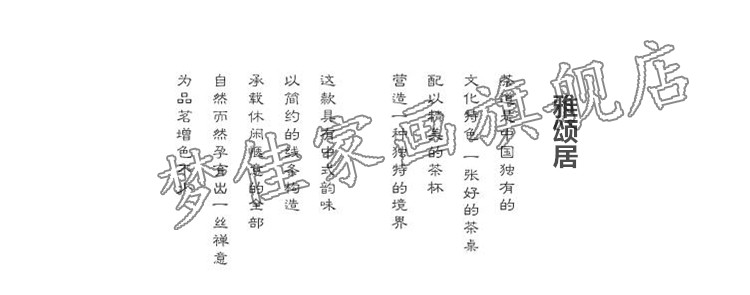 雅颂居
茶道是中国独有的
文化特色 一张好的茶桌
配以精美的茶杯
营造一种独特的境界
这款具有中式韵味
以简约的线条构造
承载休闲惬意的全部
自然而然孕育出一丝禅意
为品茗增色不少
梦佳家画旗舰店